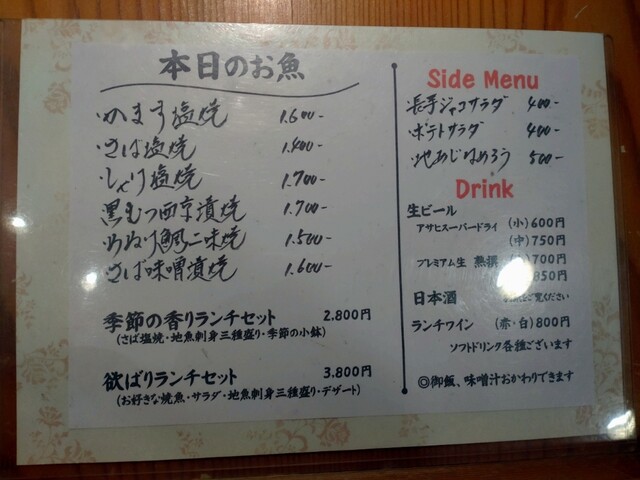 本日のお魚
・かます塩焼 1.600-
・さば塩焼 1.400-
塩焼 1.700-
・黒むつ西京漬焼 1.700-
鯛二味焼 1.500-
・さば味噌漬焼 1.600-
季節の香りランチセット 2.800円
(さば塩焼・地魚刺身三種盛り・季節の小鉢)
欲ばりランチセット 3.800円
(お好きな焼魚・サラダ・地魚刺身三種盛り・デザート)
Side Menu
・長芋ジャコサラダ 400-
・ポテトサラダ 400-
・地あじなめろう 500-
Drink
生ビール
アサヒスーパードライ (小)600円
(中)750円
プレミアム生 熟撰 700円
850円
日本酒 ご覧ください
ランチワイン (赤・白)800円
ソフトドリンク各種ございます
◎御飯、味噌汁おかわりできます